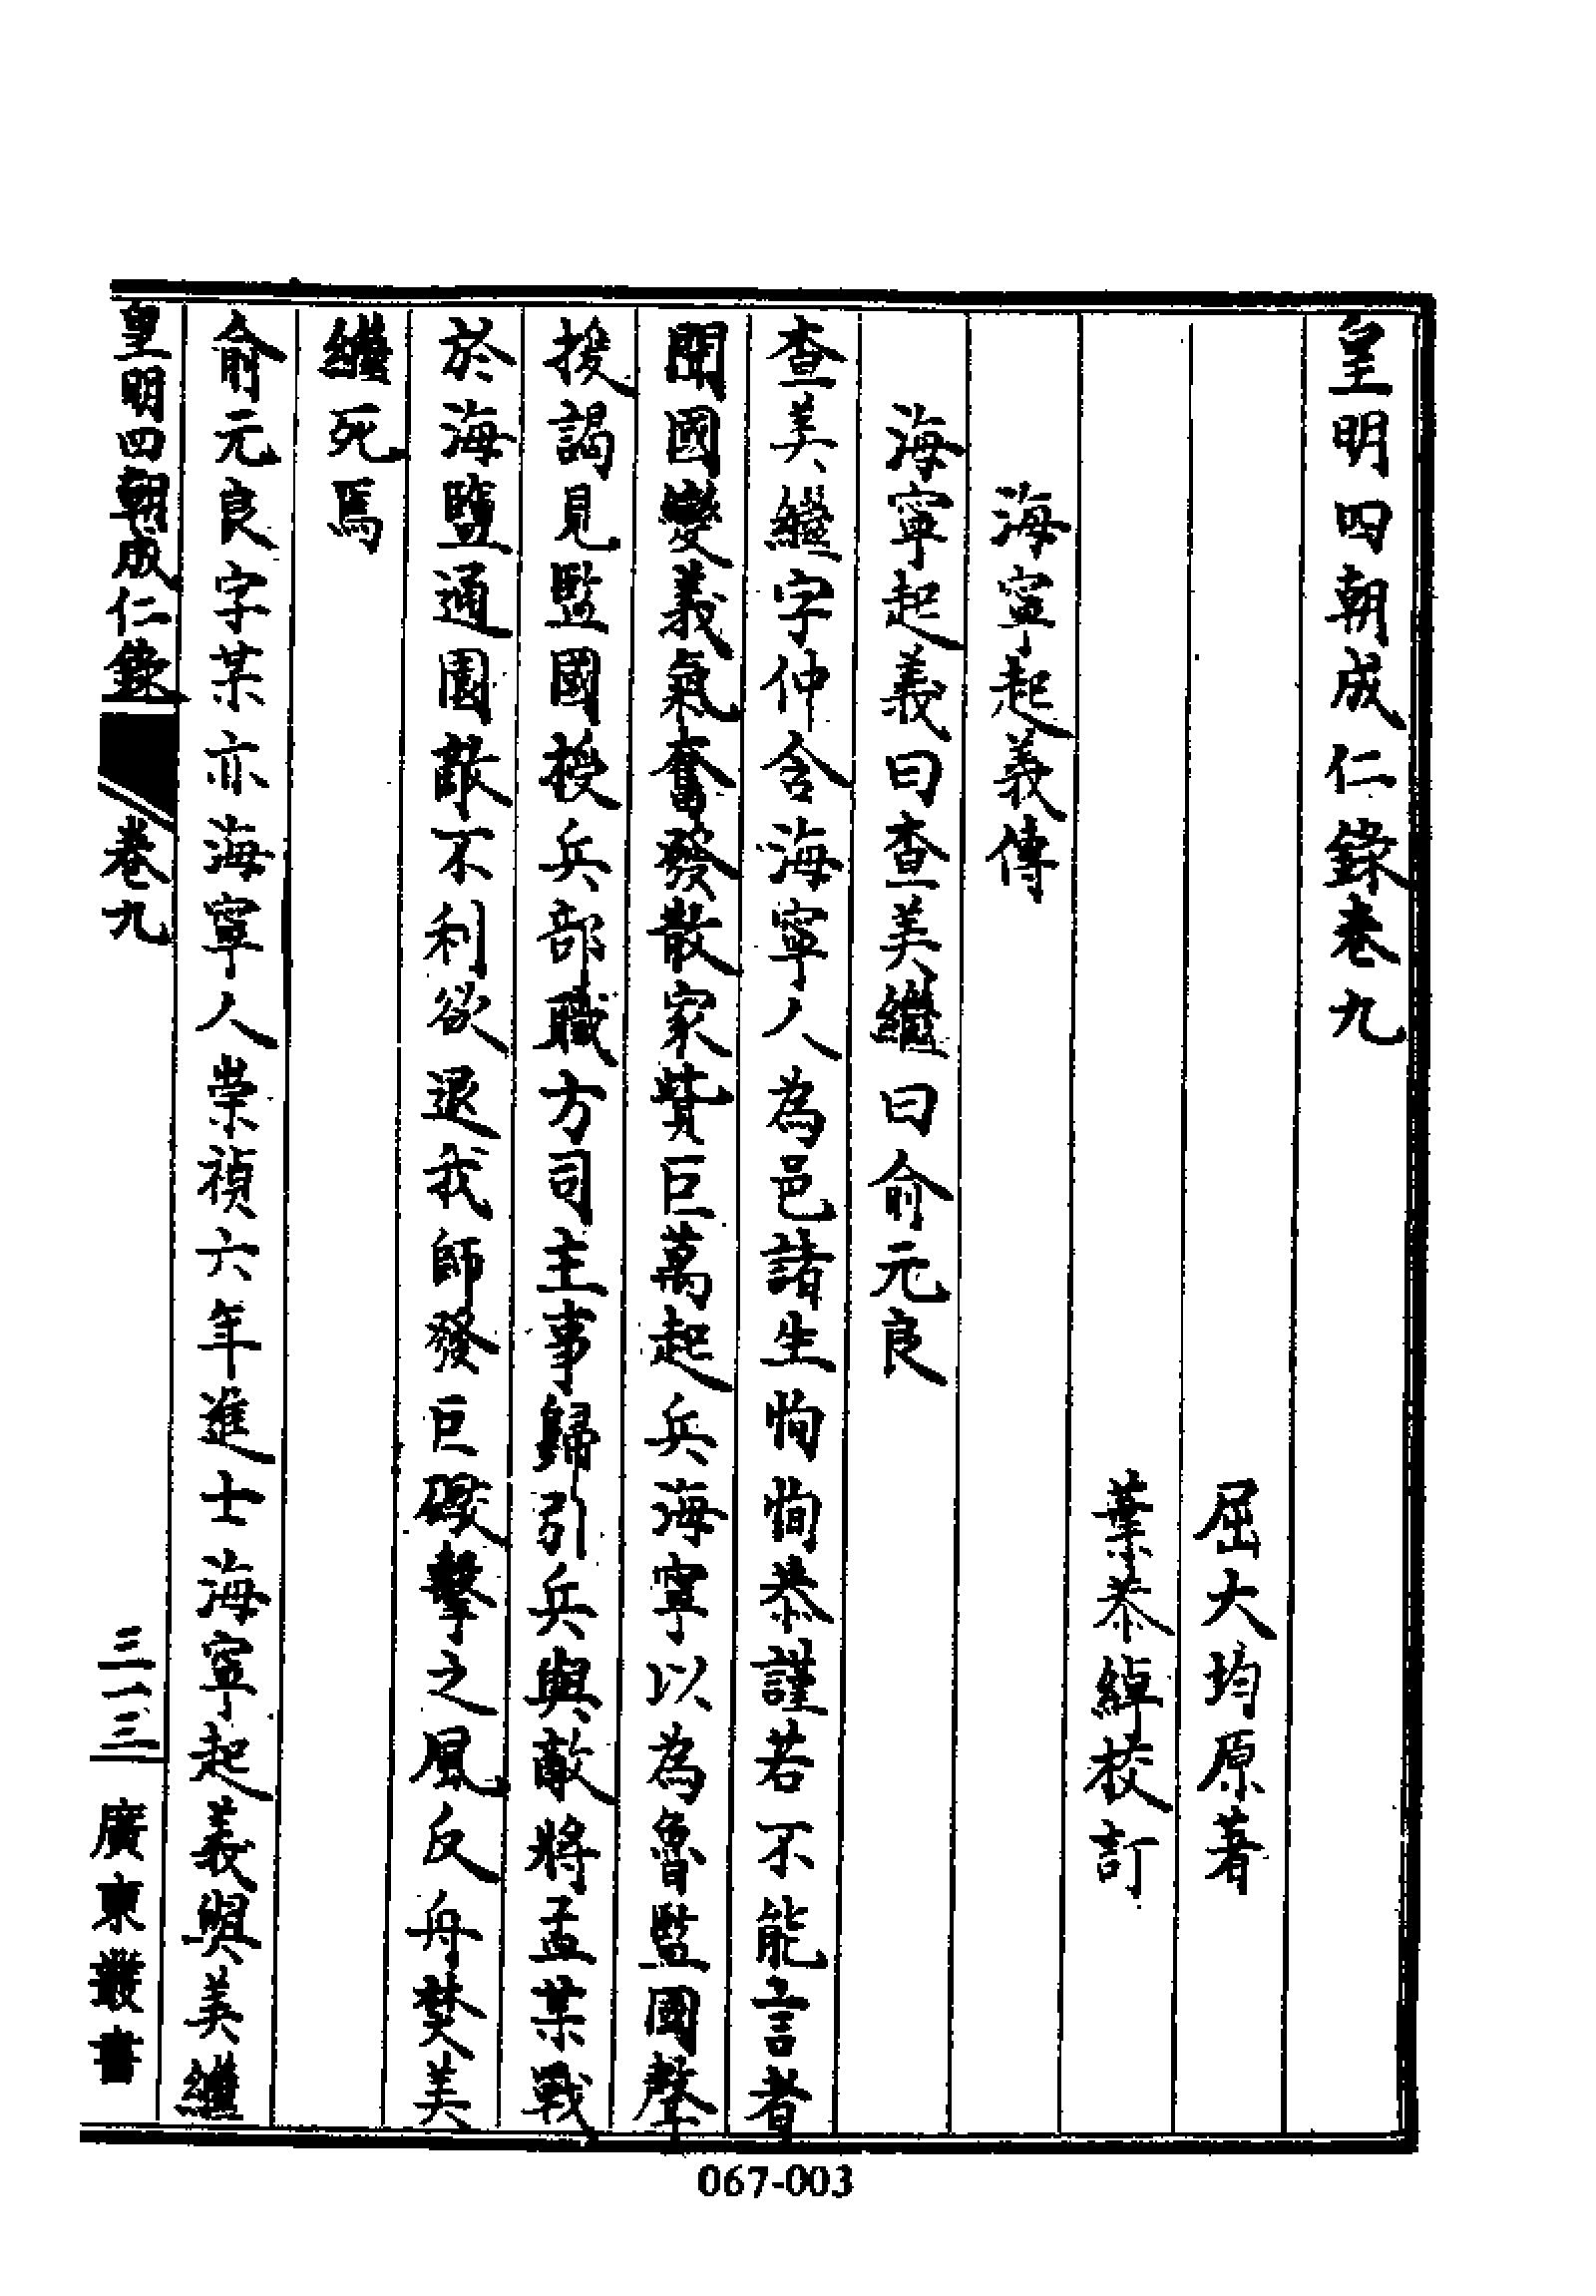 皇明四朝成仁錄卷九
屈大均原著
葉恭綽校訂
海寧起義傳
海寧起義曰查美繼曰俞元良
查美繼字仲含海寧人為邑諸生恂恂恭謹若不能言者
聞國變義氣奮發散家貲巨萬起兵海寧以為魯監國聲
援謁見監國授兵部職方司主事歸引兵與敵將孟某戰
於海鹽通園敵不利欲退我師發巨礮擊之風反舟焚美
繼死焉
俞元良字某亦海寧人崇禎六年進士海寧起義與美繼
皇明四朝成仁錄 卷九 三一三 廣東叢書
067-003